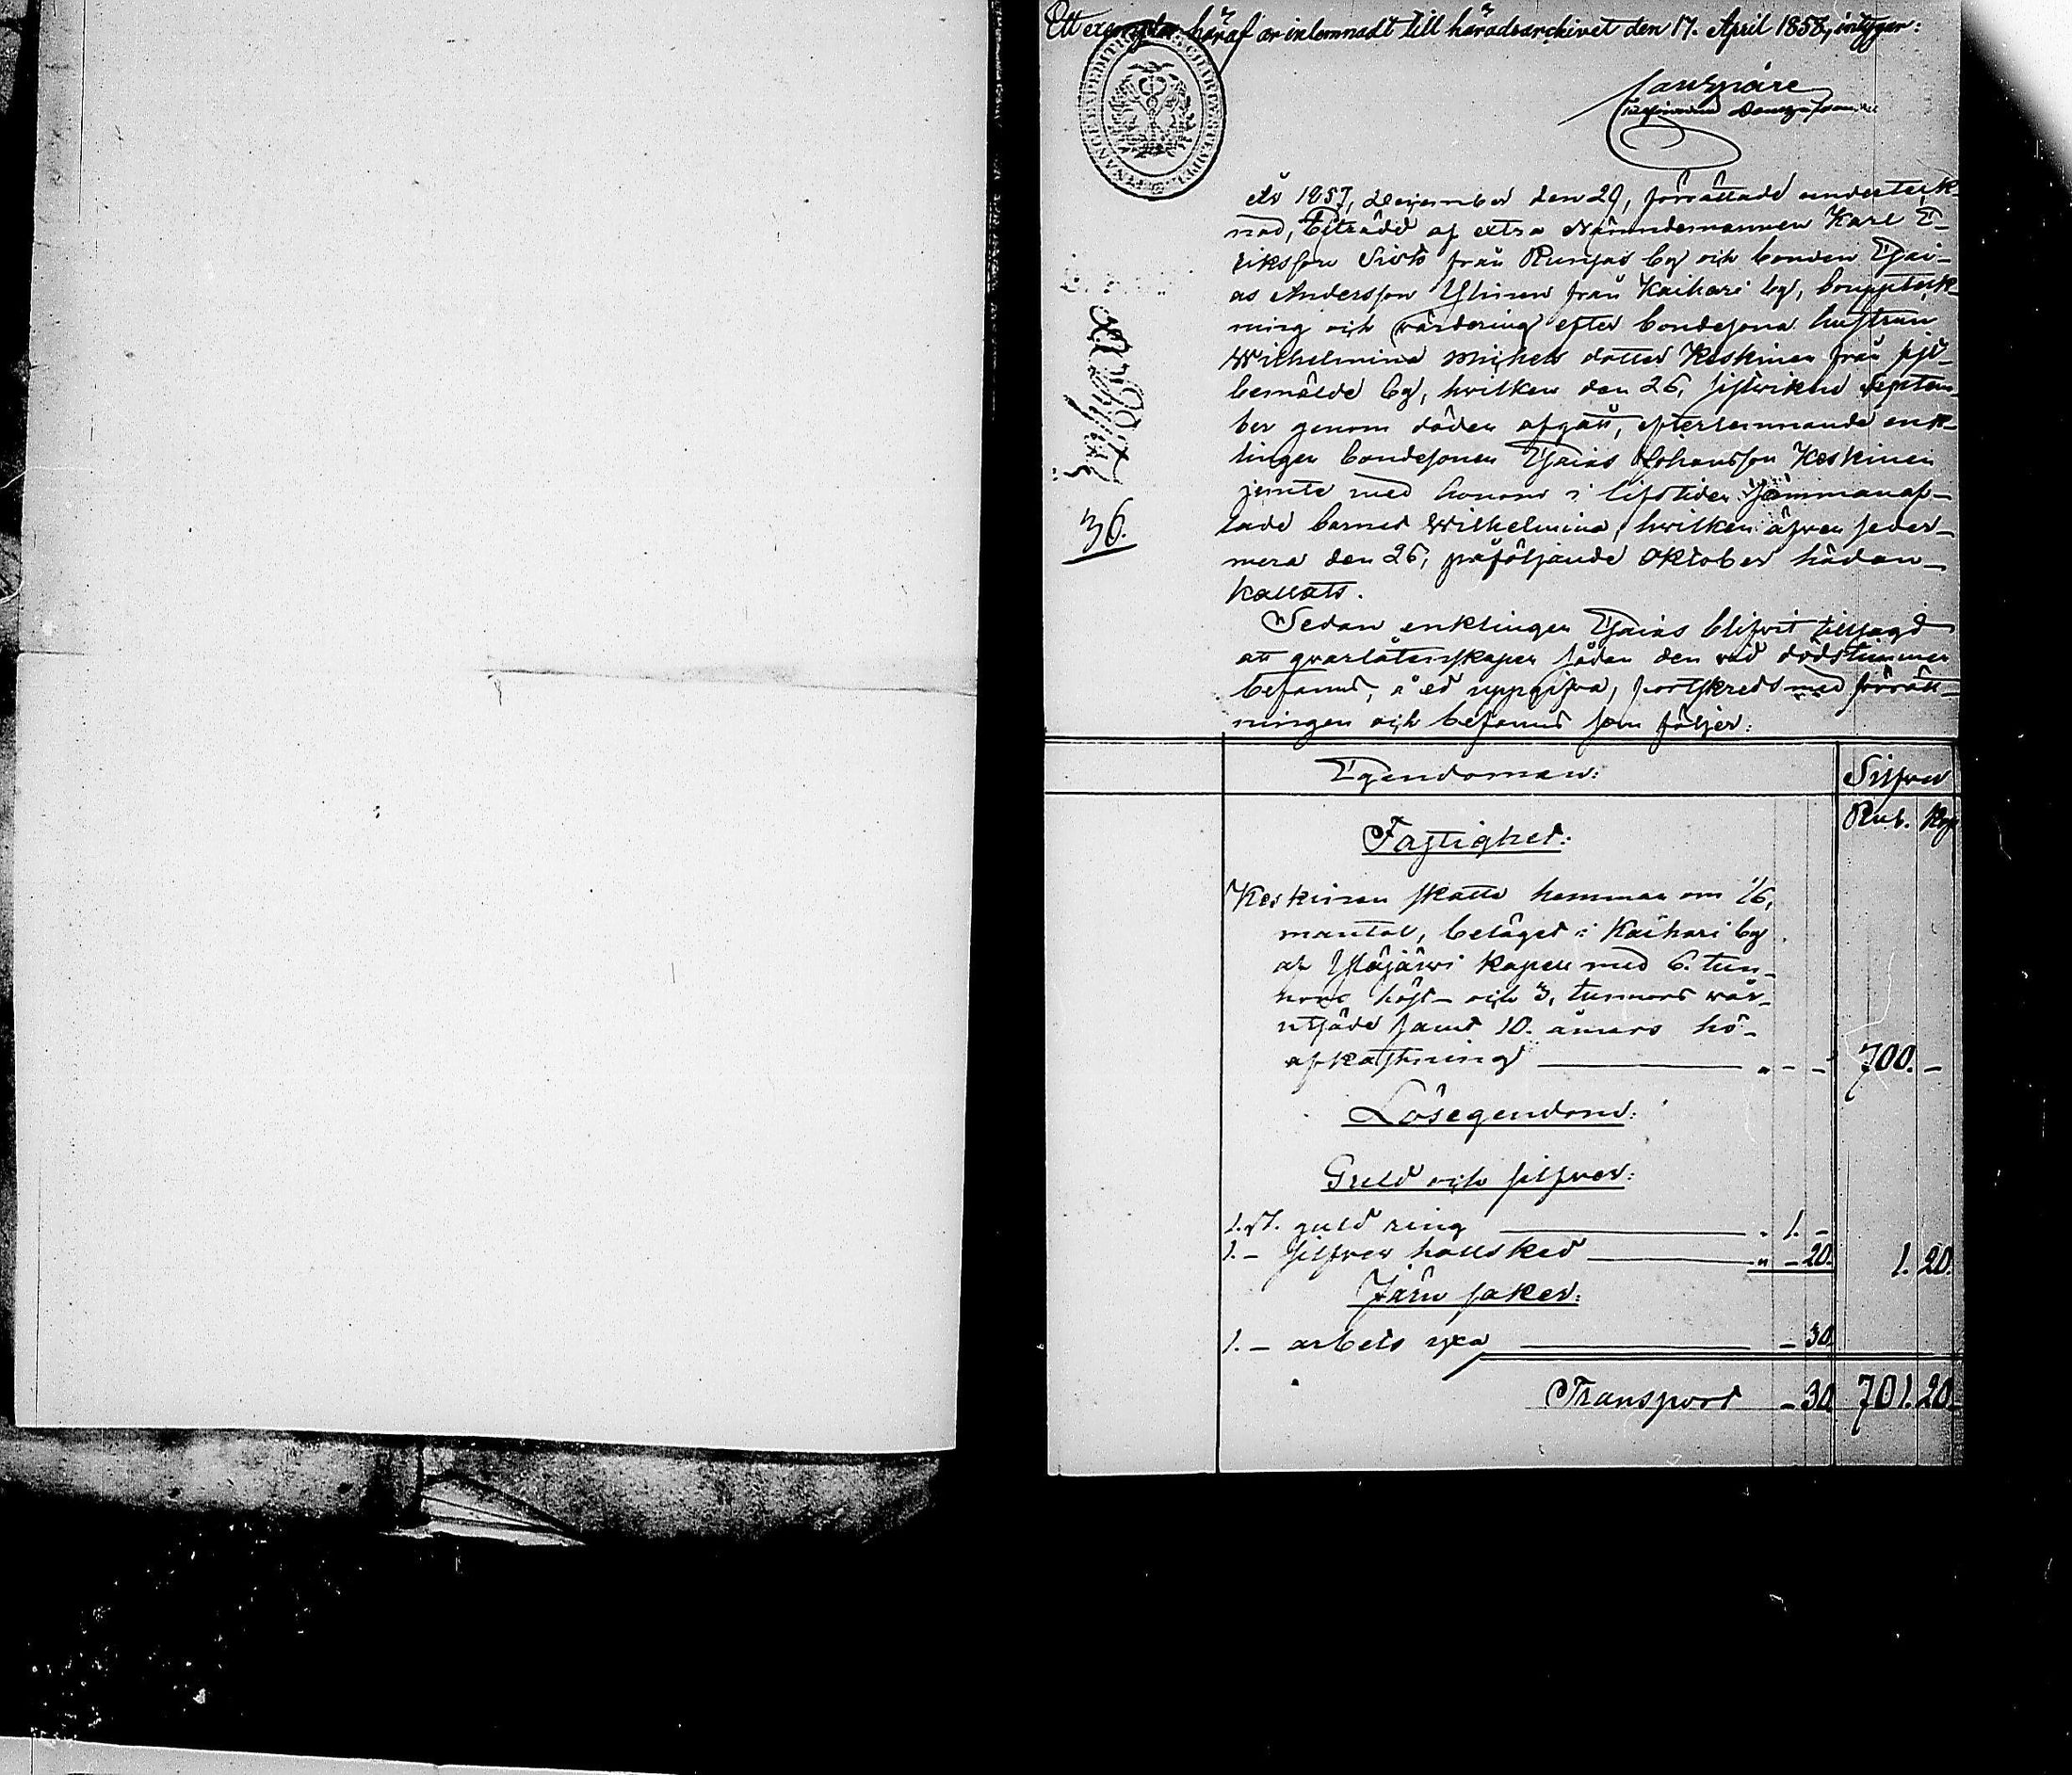 Ett exemplar häraf är inlemnadt till häradsarchivet den 17. April 1858, intygar:
År 1857, December den 29, förrättade underteck-
nad, biträdd af extra Nämndemannen Karl E-
riksson Sivo från Runsas by och bonden Esai-
as Andersson Ylinen från Kaihari by, bouppteck-
ning och värdering efter bondesona hustrun
Wilhelmina Michels dotter Keskinen från sist-
bemälde by, hvilken den 26, sistvikne Septem-
ber genom döden afgått, efterlemnande enk-
lingen bondesonen Esaias Johansson Keskinen
jemte med honom i lifstiden samman af-
lade barnet Wilhelmina, hvilken äfven seder-
mera den 26, påföljande Oktober hädan-
kallats.
36.
Sedan enklingen Esaias blifvit tillsagd
att qvarlåtenskapen sådan den vid dödstimmen
befanns, å ed uppgifva, fortskreds med förrätt-
ningen och befanns som följer:
Egendomen: Silfver
Rub. Kop
Fastighet:
Keskinen skatte hemman om 1/6,
mantal, beläget i Kaihari by
af Ylöjärvi kapell med 6. tun-
nors höst- och 3, tunnors vår-
utsäde samt 10. åmars hö-
afkastning " - - 700. -
Lösegendom:
Guld och silfver:
1. st. guld ring " 1. -
1. - silfver hallsked " - 20. 1. 20.
Järn saker:
1. - arbets yxa - 30.
Transport - 30. 701. 20.